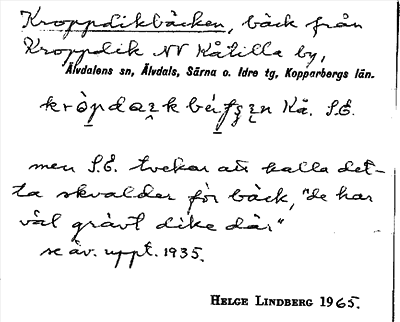 Kroppdikbäcken, bäck från
Kroppdik NV Kåtilla by,
Älvdalens sn, Älvdals, Särna o. Idre tg, Kopparbergs län.
Kå. S.E.
men S.E. tvekar att kalla det-
ta skvalder för bäck, "de har
väl grävt dike där"
se äv. uppt. 1935.
HELGE LINDBERG 1965.